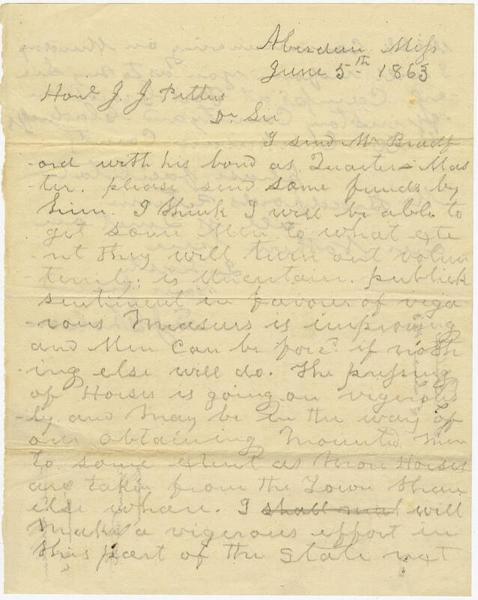 Aberdeen Miss
June 5th 1863
Honl J. J. Pettus
Dr Sir
I send Mr Bradf-
-ord with his bond as Quarter Mas
ter. please send some funds by
him. I think I will be able to
get some Men to what exte
nt they will turn out volun
terily is Uncertain. publick
sentiment in favour of viga
rous Masurs is improving
and Men can be forcd if noth
ing else will do. The pressing
of Horses is going on vigerous
ly and may be in the way of
our obtaining Mounted Men
to some extent as more Horses
are taken from the Town than
else whare. I shall mak will
make a vigerous effort in
this part of the State next